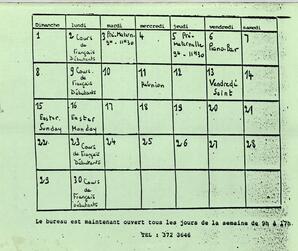 Dimanche lundi mardi mercredi jeudi vendredi samedi
1 2 Cours de Français Débutants 3 Pré-Matern. 9h - 11h30 4 5 Pré-Maternelle 9h - 11h30 6 Piano-Bar 7
8 9 Cours de Français Débutants 10 11 Réunion 12 13 Vendredi Saint 14
15 Easter Sunday 16 Easter Monday 17 18 19 20 21
22 23 Cours de Français Débutants 24 25 26 27 28
29 30 Cours de Français Débutants
Le bureau est maintenant ouvert tous les jours de la semaine de 9h à 17h.
TEL : 372 3646